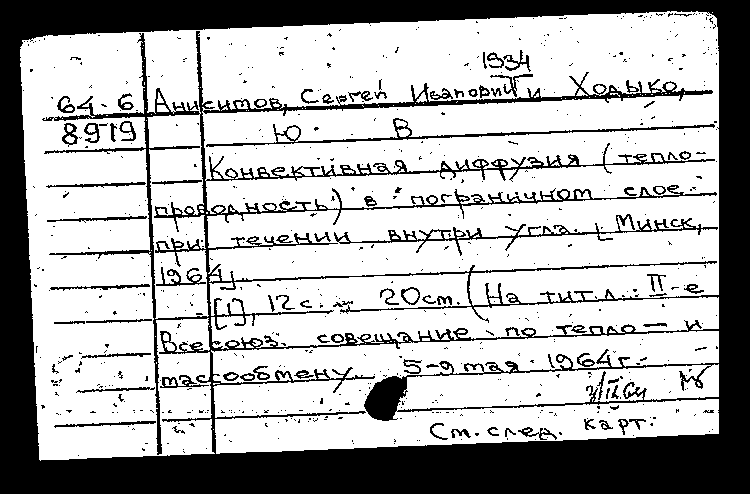 1934
64-6 Анисимов, Сергей и Ходыко,
8979 Ю. В
Конвективная диффузия (тепло-
проводность) в пограничном слое
при течении внутри угла. [Минск,
1964].
[1], 12 с. 20 см. (На тит. л.: II-е
Всесоюз. совещание по тепло- и
массообмену. 5-9 мая 1964 г.
См. след. карт.